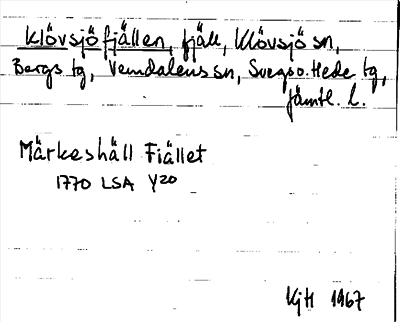 Klövsjöfjällen, fjäll, Klövsjö sn,
Bergs tg, Vemdalens sn, Svegs o. Hede tg,
Jämtl. l.
Märkeshäll Fiället
1770 LSA Y20
KjH 1967